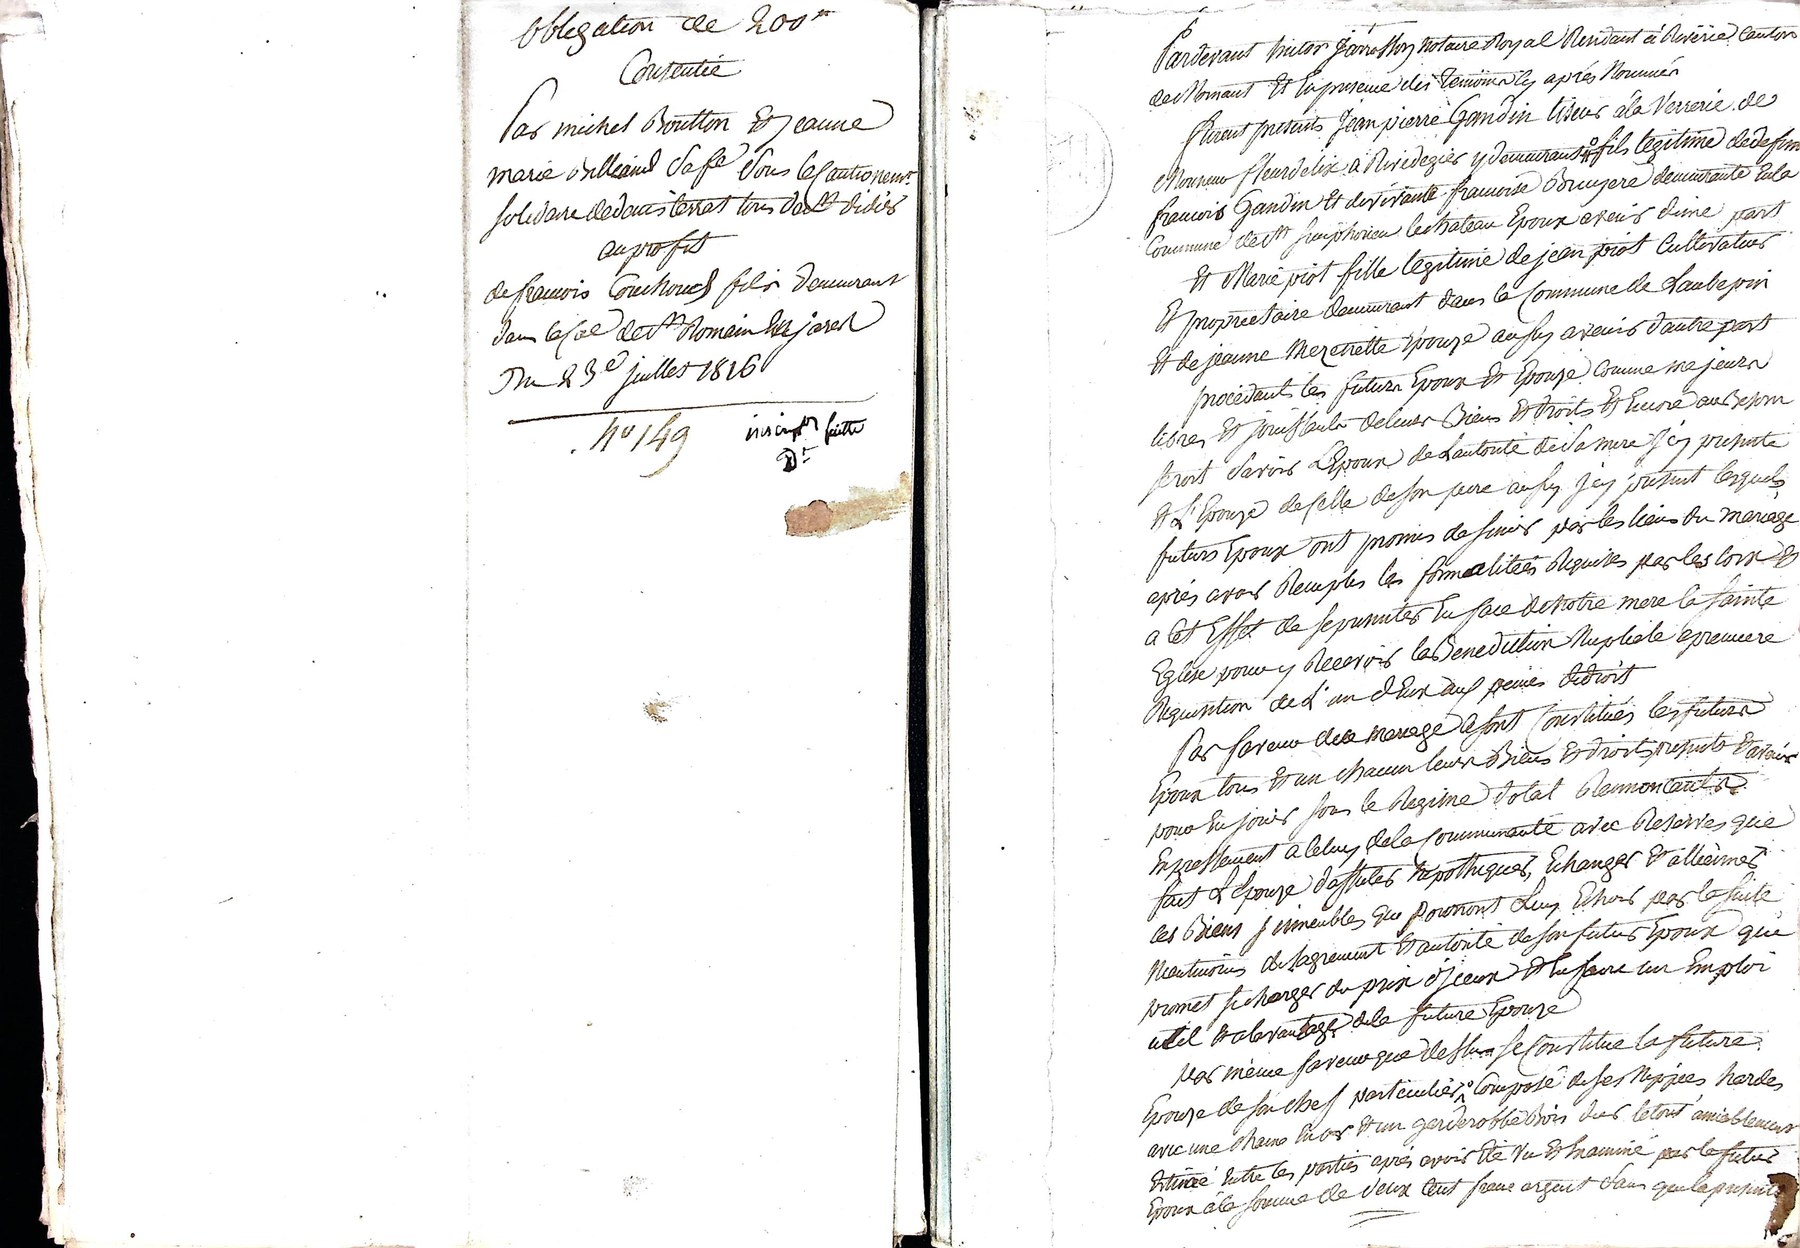 Obligation de 200#
Consentie
Par michel Boutton Et jeanne
marie Billiand sa fe sous le Cautionemt
solidaire de denis terrat tous de st didier
au profit
de francois Couchoud fils demeurant
dans la Coe de st Romain En jarest
Du 23e juillet 1816
No 149
inscripon faitte
Dt
Pardevant victor notaire Royal Residant à Riverie Canton
de Mornant Et En presence des temoins Cy après Nommés
furent presents jean pierre Gandin tiseur à la Verrerie de
Monsieur fleurdelix a Rivedegier y demeurant fils legitime de defunt
francois Gandin Et de vivante francoise Bruyere demeurante En la
Commune de st simphorien le chateau Epoux avenir d'une part
Et Marie piot fille legitime de jean piot Cultivateur
Et propriétaire demeurant dans la Commune de Laubepin
Et de jeanne Epouze aussy avenir d'autre part
procédants les futurs Epoux Et Epouze Comme majeurs
libres Et jouissants de leurs Biens Et droits Et Encore au Besoin
seront savoir L'Epoux de L'autorité de sa mere jcy presente
Et L'Epouze de Celle de son pere aussy jcy present lesquels
futurs Epoux ont promis de s'unir par les liens du mariage
après avoir Remplis les formalitées Requises par les loix Et
a Cet Effet de se presenter En face de Notre mere la sainte
Eglise pour y Recevoir la Benediction Nuptiale a premiere
Requisition de L'un d'Eux aux peines de droit
Par faveur de ce mariage se sont Constitués les futurs
Epoux tous Et un chacun leurs Biens Et droits presents Et avenir
pour En jouir sous le Regime dotal
Expressement a Celuy de la Communauté avec Reserves que
fait L'Epouze Hypothequer, Echanger Et
les Biens jmmeubles qui pourront Luy Echoir par la suite
Neanmoins de lagrement Et autorité de son futur Epoux qui
promet se charger du prix d'jceux Et En faire un Emploi
util Et a lavantage de la future Epouze
par même faveur que dessus se Constitue la future
Epouze de son chef particulier Composé de ses Nippes hardes
avec une chaine En or Et un garderobbe Bois dur le tout amiablement
Estimé Entre les parties après avoir été vu Et Examiné par le futur
Epoux à la somme de deux Cent franc argent sans que la presente